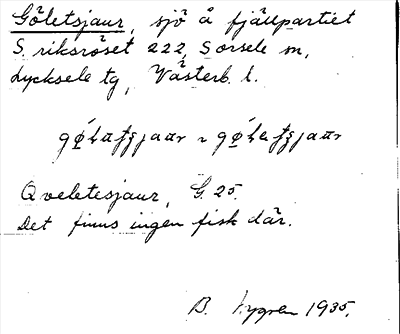 Göletsjaur, sjö å fjällpartiet
S. riksröset 222, Sorsele sn,
Lycksele tg, Västerb. l.
Qveletesjaur, G. 25.
Det finns ingen fisk där.
B. Nygren 1935.